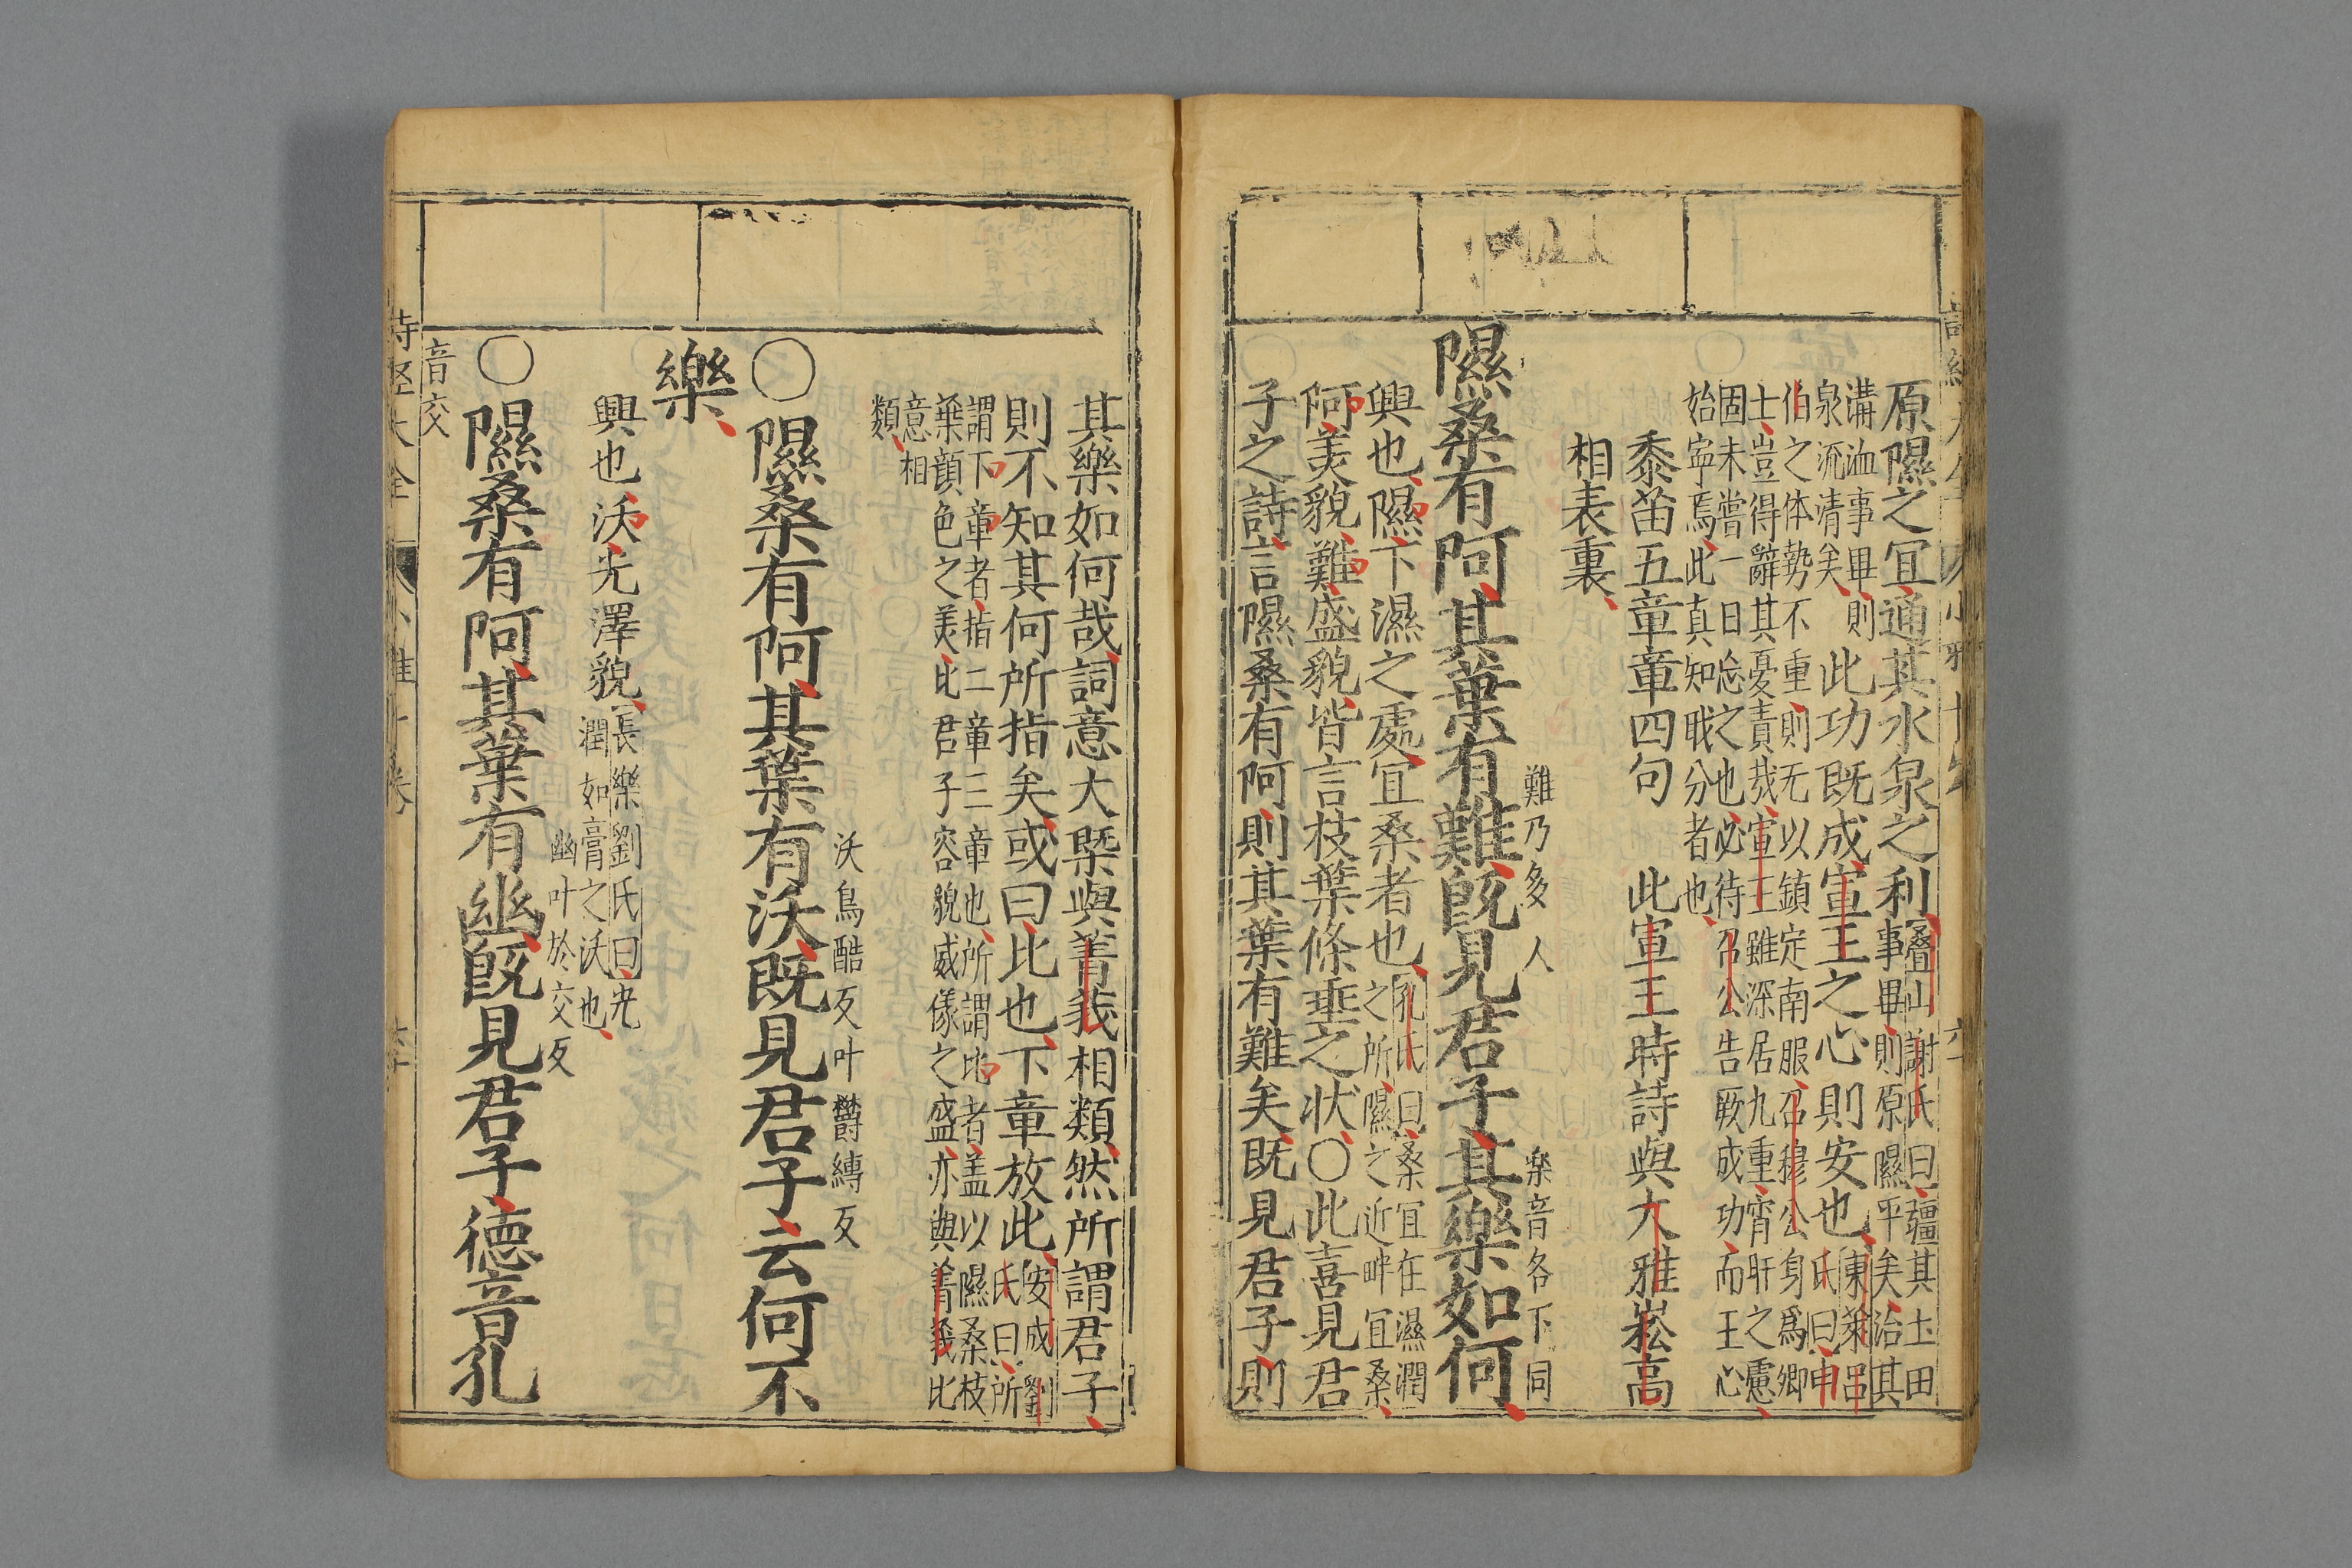 原隰之宜通其水泉之利疊山謝氏曰疆其土田
事畢則原隰平矣治其
溝洫事畢則
泉流清矣此功既成宣王之心則安也東萊呂
氏曰申
伯之体勢不重則无以鎮定南服召穆公身爲卿
士豈得辭其憂責哉宣王雖深居九重宵旰之慮
固未嘗一日忘之也必待召公告厥成功而王心
始寕焉此真知职分者也
黍苗五章章四句　此宣王時詩與大雅崧高
相表裏
難乃多人　楽音各下同
隰桑有阿其葉有難既見君子其樂如何
興也隰下濕之處宜桑者也孔氏曰桑宜在濕潤
之所隰之近畔宜桑
阿美貌難盛貌皆言枝葉條垂之状○此喜見君
子之詩言隰桑有阿則其葉有難矣既見君子則
其樂如何哉詞意大槩與菁莪相類然所謂君子
則不知其何所指矣或曰比也下章放此安成劉
氏曰所
謂下章者指二章三章也所謂比者盖以隰桑枝
葉顔色之美比君子容貌威儀之盛亦與菁莪比
意相
類
沃烏酷反叶鬱縳反
○隰桑有阿其葉有沃既見君子云何不
樂
興也沃光澤貌長樂劉氏曰光
潤如膏之沃也
幽叶於交反
○隰桑有阿其葉有幽既見君子德音孔
音交